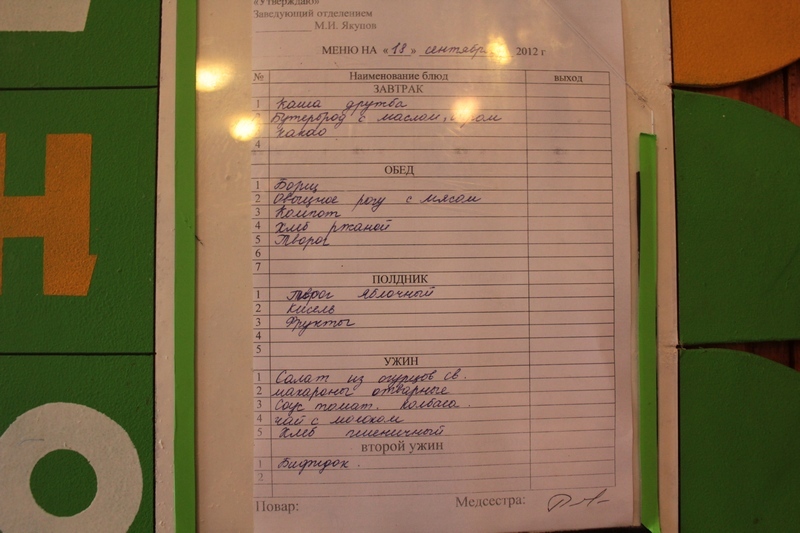 «Утверждаю»
Заведующий отделением
М.И. Якупов
МЕНЮ НА «18» сентября 2012 г
№ Наименование блюд выход
ЗАВТРАК
1 Каша друтва
2 Бутерброд с маслом, сыром
3 Какао
4
ОБЕД
1 Борщ
2 Овощное рогу с мясом
3 Компот
4 Хлеб ржаной
5 Творог
6
7
ПОЛДНИК
1 Пирог яблочный
2 Кисель
3 Фрукты
4
5
УЖИН
1 Салат из огурцов св.
2 макароны отварные
3 Соус томат. колбаса
4 чай с молоком
5 Хлеб пшеничный
второй ужин
1 Бифидок.
2
Повар: Медсестра:
Н
О